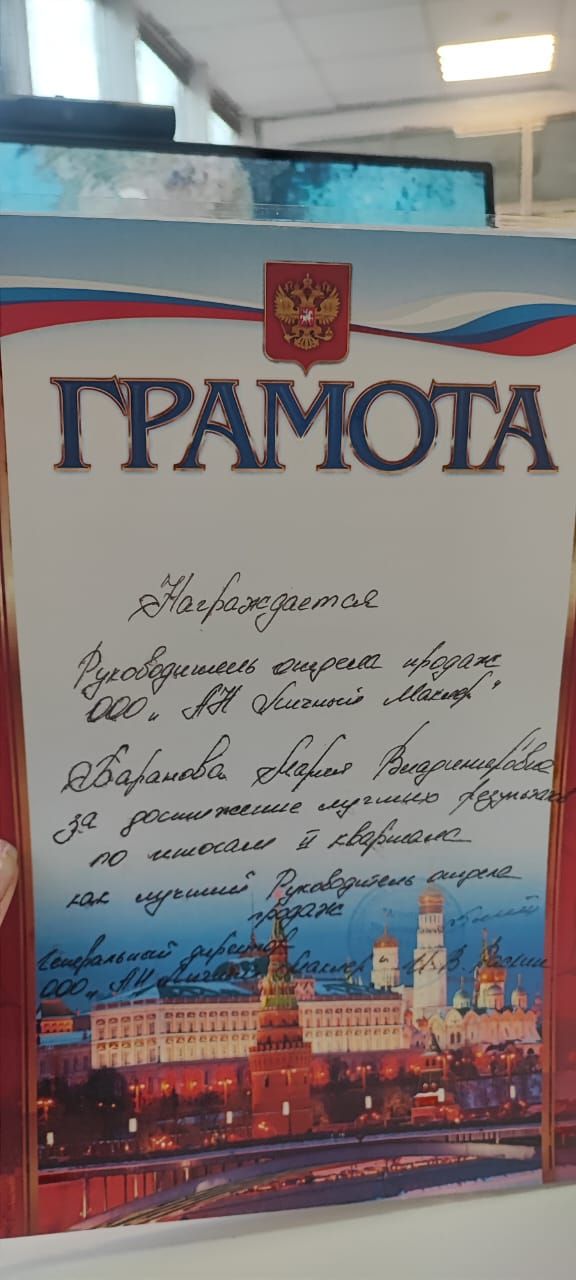 ГРАМОТА
Награждается
Руководитель отдела продаж
ООО „ АН Личный Маклер"
Баранова Мария Владимировна
за достижение лучших результатов
по итогам II квартала
как лучший Руководитель отдела
продаж
Генеральный директор
ООО „ АН Личный Маклер" И.В.